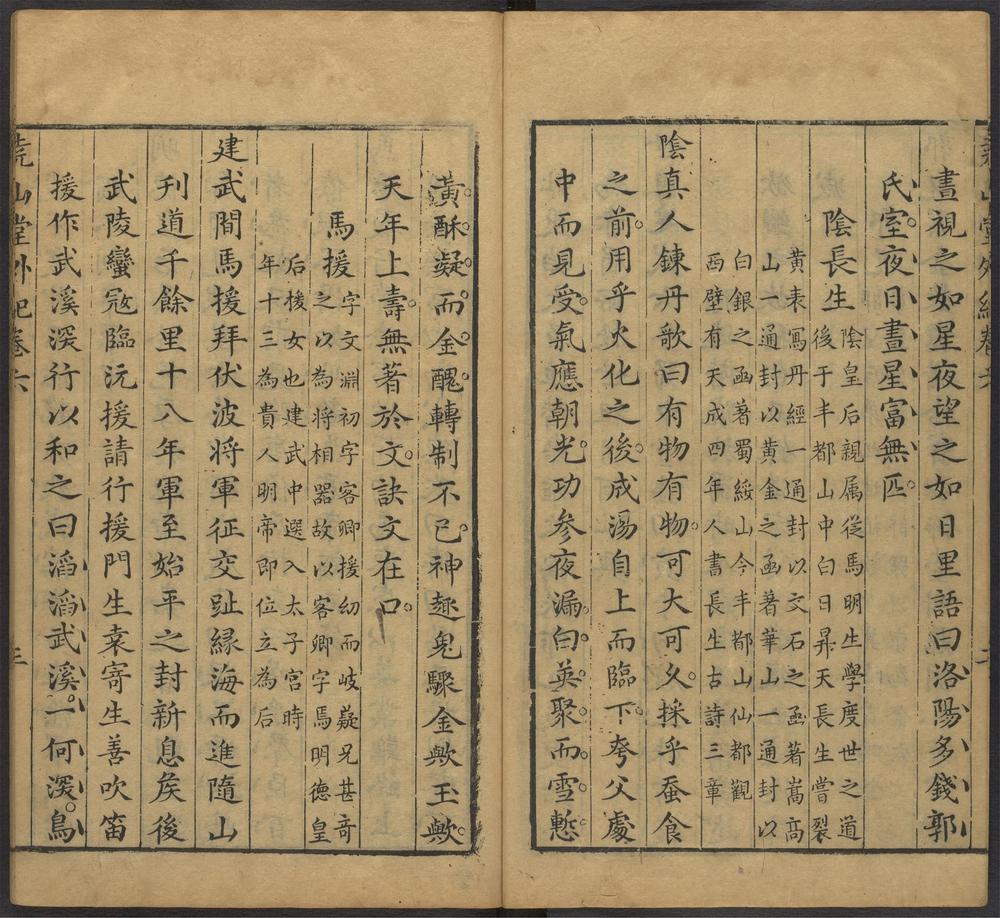 晝視之如星夜望之如日里語曰洛陽多錢郭
氏室夜日晝星富無匹
陰長生
陰皇后親属從馬明生學度世之道
後于丰都山中白日昇天長生嘗裂
黄表寫丹經一通封以文石之函著嵩高
山一通封以黄金之函著華山一通封以
白銀之函著蜀綏山今丰都山仙都觀
西壁有天成四年人書長生古詩三章
陰真人鍊丹歌曰有物有物可大可久採乎蚕食
之前用乎火化之後成湯自上而臨下夸父處
中而見受氣應朝光功参夜漏白英聚而雪慙
黄酥凝而金醜轉制不已神趂鬼驟金歟玉歟
天年上壽無著於文訣文在口
馬援
字文淵初字客卿援幼而岐嶷兄甚奇
之以為將相器故以客卿字焉明德皇
后援女也建武中選入太子宮時
年十三為貴人明帝即位立為后
建武間馬援拜伏波将軍征交趾緣海而進隨山
刋道千餘里十八年軍至始平之封新息矦後
武陵蠻冦臨沅援請行援門生袁寄生善吹笛
援作武溪深行以和之曰滔滔武溪一何深鳥
堯山堂外紀卷六